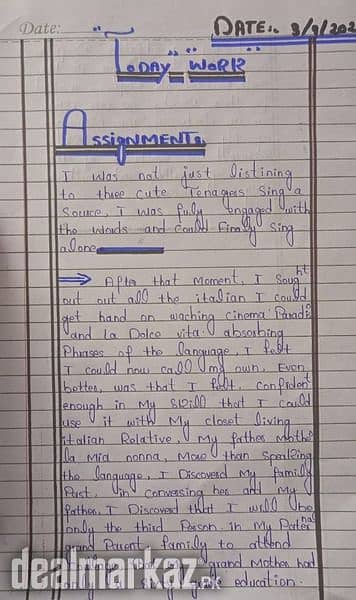 Date:
DATE:. 3/9/202
TODAY WORK
ASSIGNMENT.
I was not just listining
to three cute Tenagers Sing a
Source, I was fuly engaged with
the words and could Finaly Sing
alone
After that moment, I Sought
out out all the italian I could
get hand on waching cinema Paradi
and La Dolce vita. absorbing
Phrases of the language, I felt
I could now call my own. Even
better, was that I felt confident
enough in My Skill that I could
use it with My closet living
italian Relative, My father Mothe
la Mia nonna, More than Speaking
the language, I Discoverd My family
Past, in conversing her and My
father, I Discoverd that I will be
only the third Person in My Paternal
grand Parent family to attend
grand Mother had
education.
dealmarkaz.pk